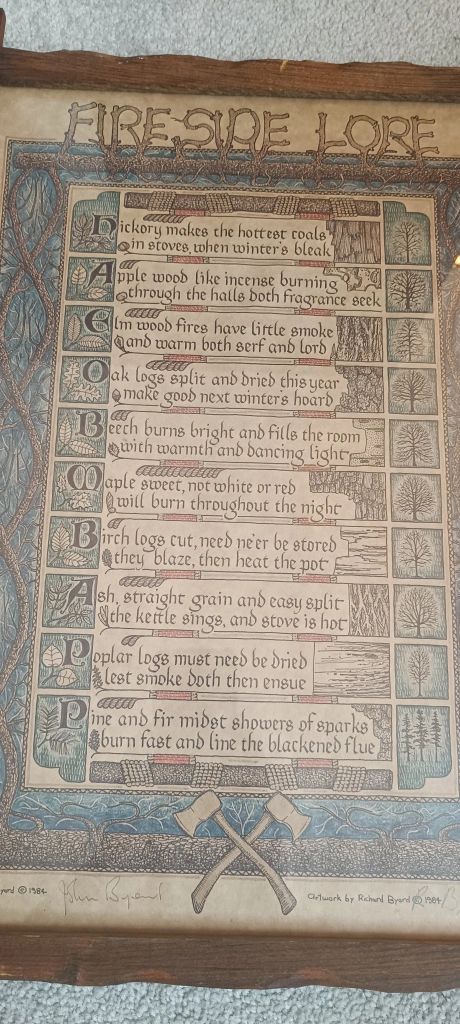 FIRESIDE LORE
Hickory makes the hottest coals
in stoves when winter's bleak
Apple wood like incense burning
through the halls doth fragrance seek
Elm wood fires have little smoke
and warm both serf and lord
Oak logs split and dried this year
make good next winter's hoard
Beech burns bright and fills the room
with warmth and dancing light
Maple sweet, not white or red
will burn throughout the night
Birch logs cut, need ne'er be stored
they blaze, then heat the pot
Ash, straight grain and easy split
the kettle sings, and stove is hot
Poplar logs must need be dried
lest smoke doth then ensue
Pine and fir midst showers of sparks
burn fast and line the blackened flue
yard © 1984 John Byard
Artwork by Richard Byard © 1984